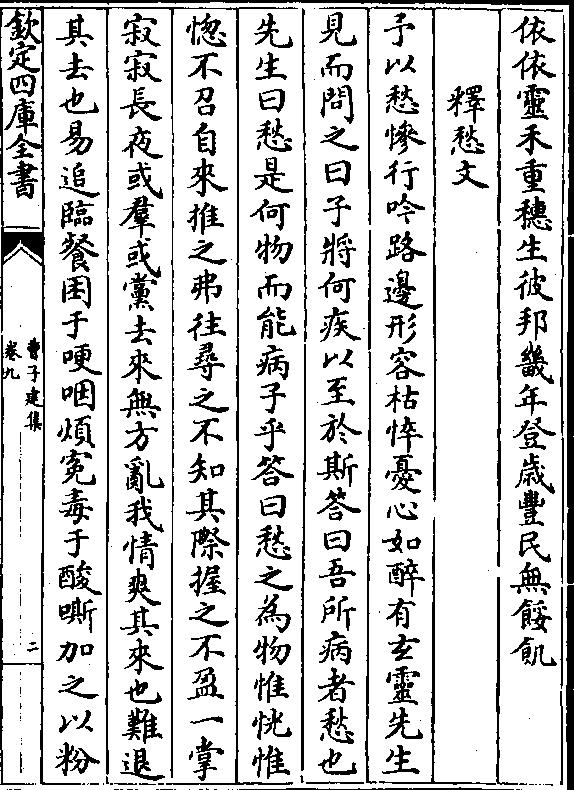 依依靈禾重穗生彼邦畿年登歳豐民無餒飢
釋愁文
予以愁慘行吟路邊形容枯悴憂心如醉有玄靈先生
見而問之曰子將何疾以至於斯答曰吾所病者愁也
先生曰愁是何物而能病子乎答曰愁之為物惟恍惟
惚不召自來推之弗往尋之不知其際握之不盈一掌
寂寂長夜或羣或黨去來無方亂我情爽其來也難退
其去也易追臨餐困于哽咽煩寃毒于酸嘶加之以粉
欽定四庫全書
曹子建集
卷九
二